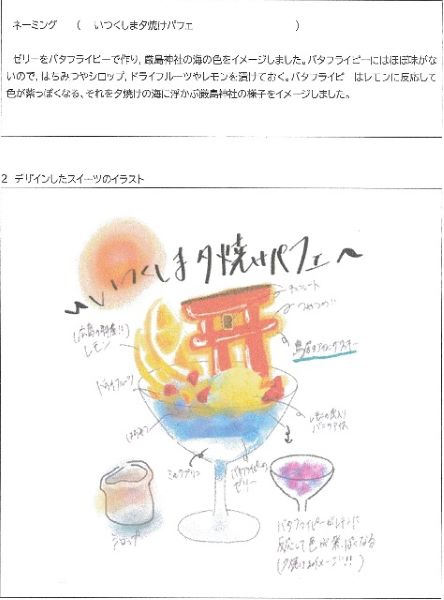 ネーミング （ いつくしま夕焼けパフェ ）
ゼリーをバタフライピーで作り，厳島神社の海の色をイメージしました。バタフライピーにはほぼ味がな
いので，はちみつやシロップ，ドライフルーツやレモンを漬けておく。バタフライピーはレモンに反応して
色が紫っぽくなる、それを夕焼けの海に浮かぶ厳島神社の様子をイメージしました。
2 デザインしたスイーツのイラスト
～いつくしま夕焼けパフェ～
チョコレート
つめつめ!!
(広島の特産!!)
レモン
鳥居のアイシングクッキー
ドライフルーツ
レモンの皮入り
バニラアイス
はちみつ
ミルクプリン
バタフライピーの
ゼリー
シロップ
バタフライピーがレモンに
反応して色が紫っぽくなる
(夕焼けをイメージ!!)